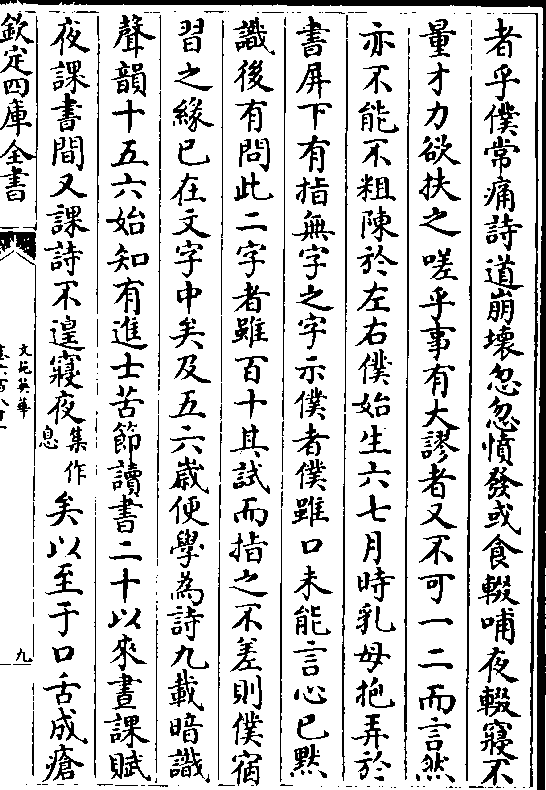 者乎僕常痛詩道崩壊忽忽憤發或食輟哺夜輟寢不
量才力欲扶之嗟乎事有大謬者又不可一二而言然
亦不能不粗陳於左右僕始生六七月時乳母抱弄於
書屏下有指無字之字示僕者僕雖口未能言心已黙
識後有問此二字者雖百十其試而指之不差則僕宿
習之緣已在文字中矣及五六歲便學為詩九載暗識
聲韻十五六始知有進士苦節讀書二十以來晝課賦
夜課書間又課詩不遑寢夜集作息矣以至于口舌成瘡
欽定四庫全書
文苑英華
九